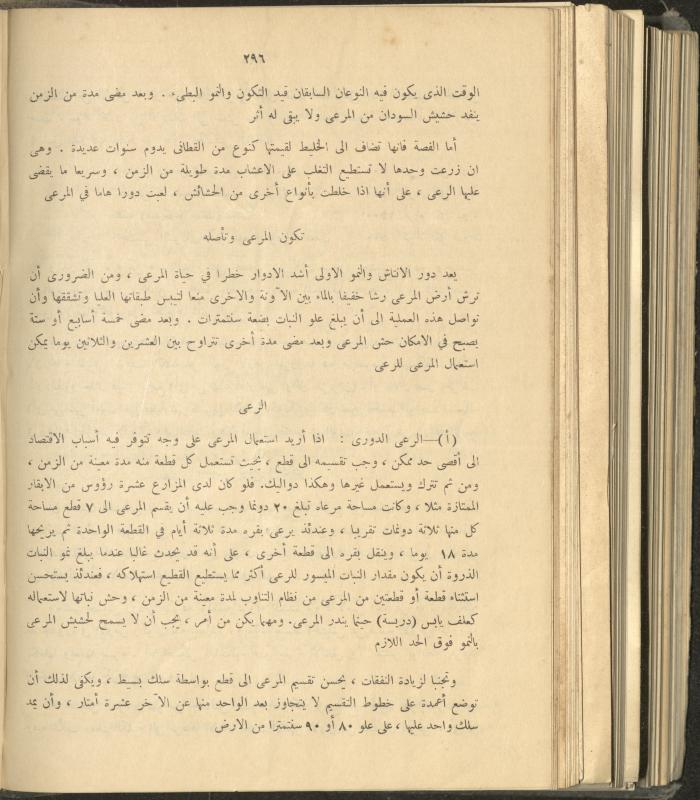 ٢٩٦
الوقت الذى يكون فيه النوعان السابقان قيد التكون والنمو البطىء . وبعد مضى مدة من الزمن
ينفد حشيش السودان من المرعى ولا يبقى له أثر
أما الفصة فانها تضاف الى الخليط لقيمتها كنوع من القطانى يدوم سنوات عديدة . وهى
ان زرعت وحدها لا تستطيع التغلب على الاعشاب مدة طويلة من الزمن ، وسريعا ما يقضى
عليها الرعى ، على أنها اذا خلطت بأنواع أخرى من الحشائش ، لعبت دورا هاما في المرعى
تكون المرعى وتأصله
يعد دور الانتاش والنمو الاولى أشد الادوار خطرا في حياة المرعى ، ومن الضرورى أن
ترش أرض المرعى رشا خفيفا بالماء بين الآونة والاخرى منعا لتيبس طبقاتها العليا وتشققها وأن
تواصل هذه العملية الى أن يبلغ علو النبات بضعة سنتمترات . وبعد مضى خمسة أسابيع أو ستة
يصبح في الامكان حش المرعى وبعد مضى مدة أخرى تتراوح بين العشرين والثلاثين يوما يمكن
استعمال المرعى للرعى
الرعى
(أ)—الرعى الدورى : اذا أريد استعمال المرعى على وجه تتوفر فيه أسباب الاقتصاد
الى أقصى حد ممكن ، وجب تقسيمه الى قطع ، بحيث تستعمل كل قطعة منه مدة معينة من الزمن ،
ومن ثم تترك ويستعمل غيرها وهكذا دواليك. فلو كان لدى المزارع عشرة رؤوس من الابقار
الممتازة مثلا ، وكانت مساحة مرعاه تبلغ ٢٠ دونما وجب عليه أن يقسم المرعى الى ٧ قطع مساحة
كل منها ثلاثة دونمات تقريبا ، وعندئذ يرعى بقره مدة ثلاثة أيام في القطعة الواحدة ثم يريحها
مدة ١٨ يوما ، وينقل بقره الى قطعة أخرى ، على أنه قد يحدث غالبا عندما يبلغ نمو النبات
الذروة أن يكون مقدار النبات الميسور للرعى أكثر مما يستطيع القطيع استهلاكه ، فعندئذ يستحسن
استثناء قطعة أو قطعتين من المرعى من نظام التناوب لمدة معينة من الزمن ، وحش نباتها لاستعماله
كعلف يابس (دريسة) حينما يندر المرعى. ومهما يكن من أمر ، يجب أن لا يسمح لحشيش المرعى
بالنمو فوق الحد اللازم
وتجنبا لزيادة النفقات ، يحسن تقسيم المرعى الى قطع بواسطة سلك بسيط ، ويكفى لذلك أن
توضع أعمدة على خطوط التقسيم لا يتجاوز بعد الواحد منها عن الآخر عشرة أمتار ، وأن يمد
سلك واحد عليها ، على علو ٨٠ أو ٩٠ سنتمترا من الارض